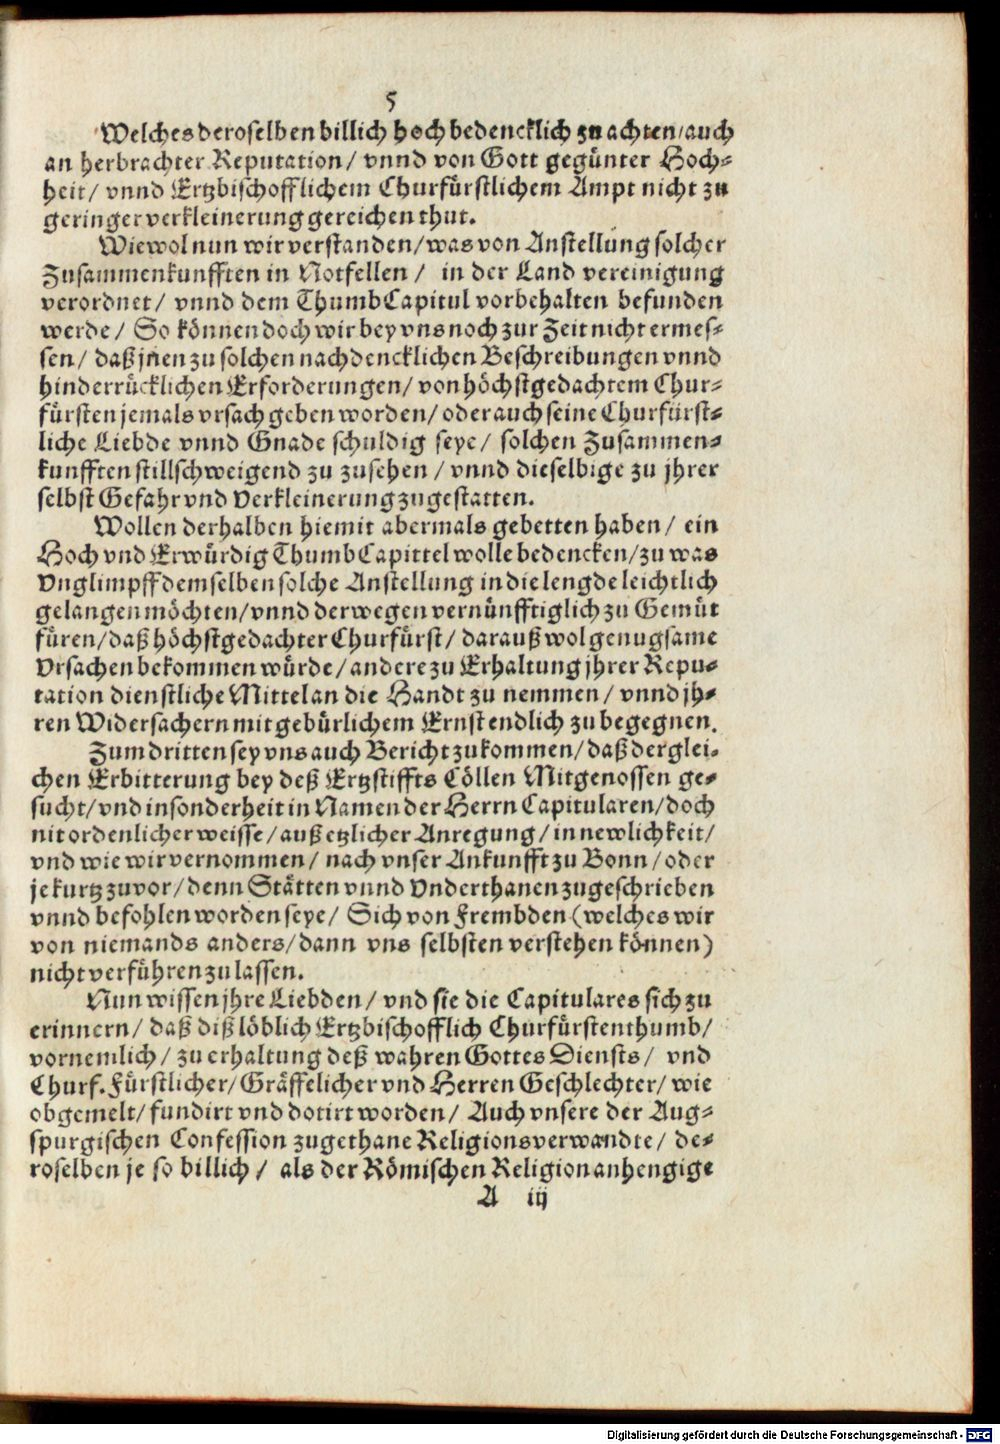 5
Welches deroselben billich hoch bedencklich zu achten/ auch
an herbrachter Reputation/ vnnd von Gott gegünter Hoch-
heit/ vnnd Ertzbischofflichem Churfürstlichem Ampt nicht zu
geringer verkleinerung gereichen thut.
Wiewol nun wir verstanden/ was von Anstellung solcher
Zusammenkunfften in Notfellen/ in der Land vereinigung
verordnet/ vnnd dem ThumbCapitul vorbehalten befunden
werde/ So können doch wir bey vns noch zur Zeit nicht ermes-
sen/ daß jnen zu solchen nachdencklichen Beschreibungen vnnd
hinderrücklichen Erforderungen/ von höchstgedachtem Chur-
fürsten jemals vrsach geben worden/ oder auch seine Churfürst-
liche Liebde vnnd Gnade schuldig seye/ solchen Zusammen-
kunfften stillschweigend zu zusehen/ vnnd dieselbige zu jhrer
selbst Gefahr vnd Verkleinerung zugestatten.
Wollen derhalben hiemit abermals gebetten haben/ ein
Hoch vnd Erwürdig ThumbCapittel wolle bedencken/ zu was
Vnglimpff demselben solche Anstellung in die lengde leichtlich
gelangen möchten/ vnnd derwegen vernünfftiglich zu Gemüt
füren/ daß höchstgedachter Churfürst/ darauß wol genugsame
Vrsachen bekommen würde/ andere zu Erhaltung jhrer Repu-
tation dienstliche Mittel an die Handt zu nemmen/ vnnd jh-
ren Widersachern mit gebürlichem Ernst endlich zu begegnen.
Zum dritten sey vns auch Bericht zukommen/ daß derglei-
chen Erbitterung bey deß Ertzstiffts Cöllen Mitgenossen ge-
sucht/ vnd insonderheit in Namen der Herrn Capitularen/ doch
nit ordenlicher weisse/ auß etzlicher Anregung/ in newlichkeit/
vnd wie wir vernommen/ nach vnser Ankunfft zu Bonn/ oder
je kurtz zuvor/ denn Stätten vnnd Vnderthanen zugeschrieben
vnnd befohlen worden seye/ Sich von Frembden (welches wir
von niemands anders/ dann vns selbsten verstehen können)
nicht verführen zu lassen.
Nun wissen jhre Liebden/ vnd sie die Capitulares sich zu
erinnern/ daß diß löblich Ertzbischofflich Churfürstenthumb/
vornemlich/ zu erhaltung deß wahren Gottes Diensts/ vnd
Churf. Fürstlicher/ Gräffelicher vnd Herren Geschlechter/ wie
obgemelt/ fundirt vnd dotirt worden/ Auch vnsere der Aug-
spurgischen Confession zugethane Religionsverwandte/ de-
roselben je so billich/ als der Römischen Religion anhengige
A iij
Digitalisierung gefördert durch die Deutsche Forschungsgemeinschaft - DFG